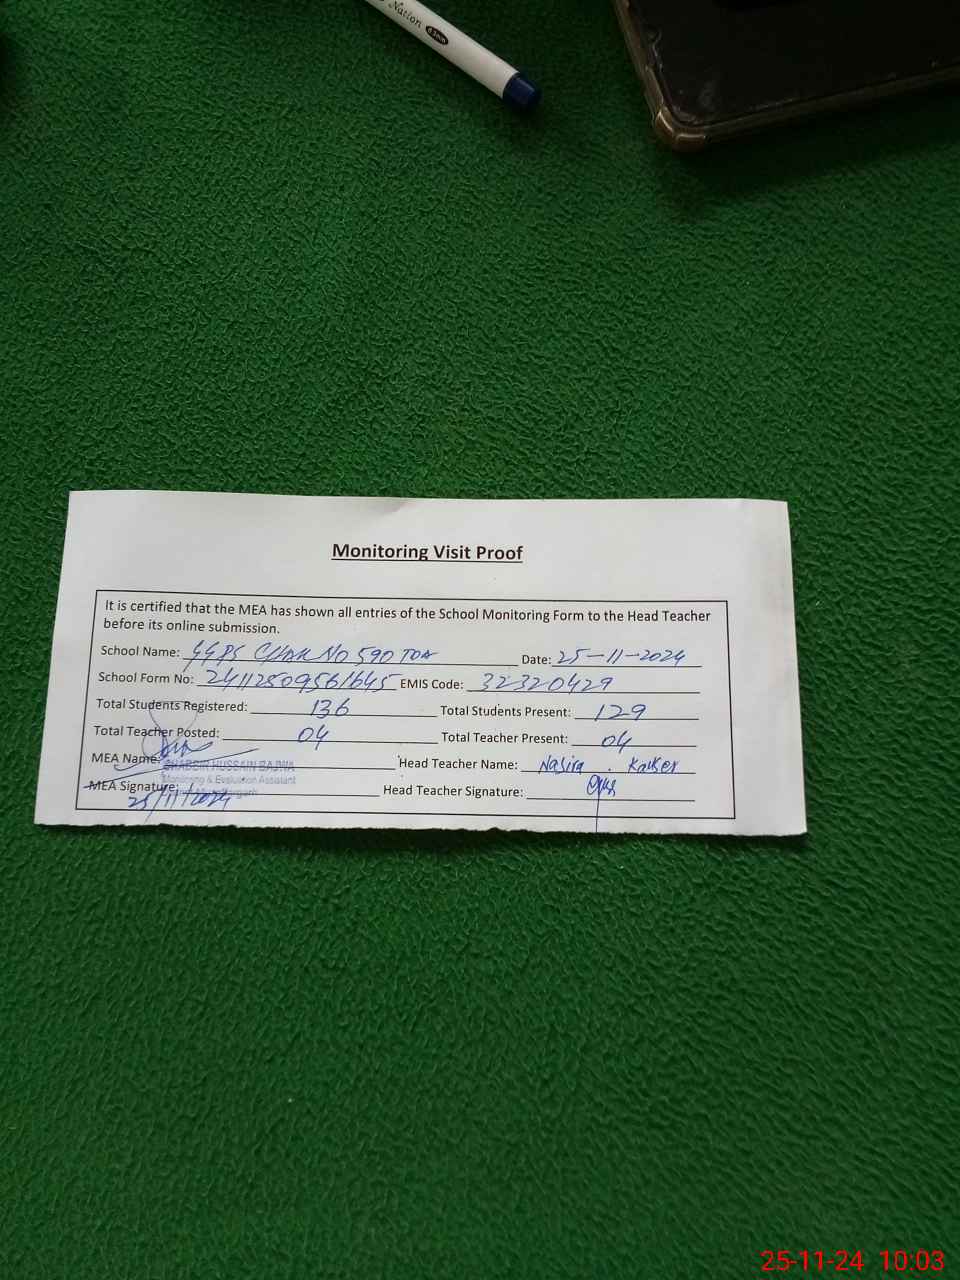 Nation 0.5mm
Monitoring Visit Proof
It is certified that the MEA has shown all entries of the School Monitoring Form to the Head Teacher
before its online submission.
School Name: GGPS CHAK NO 590 TDA Date: 25-11-2024
School Form No: 24112509561645 EMIS Code: 32320429
Total Students Registered: 136 Total Students Present: 129
Total Teacher Posted: 04 Total Teacher Present: 04
MEA Name: SHABBIR HUSSAIN BAJWA Head Teacher Name: Nasira . Kauser
Monitoring & Evaluation Assistant
MEA Signature: Head Teacher Signature:
25/11/2024
25-11-24 10:03